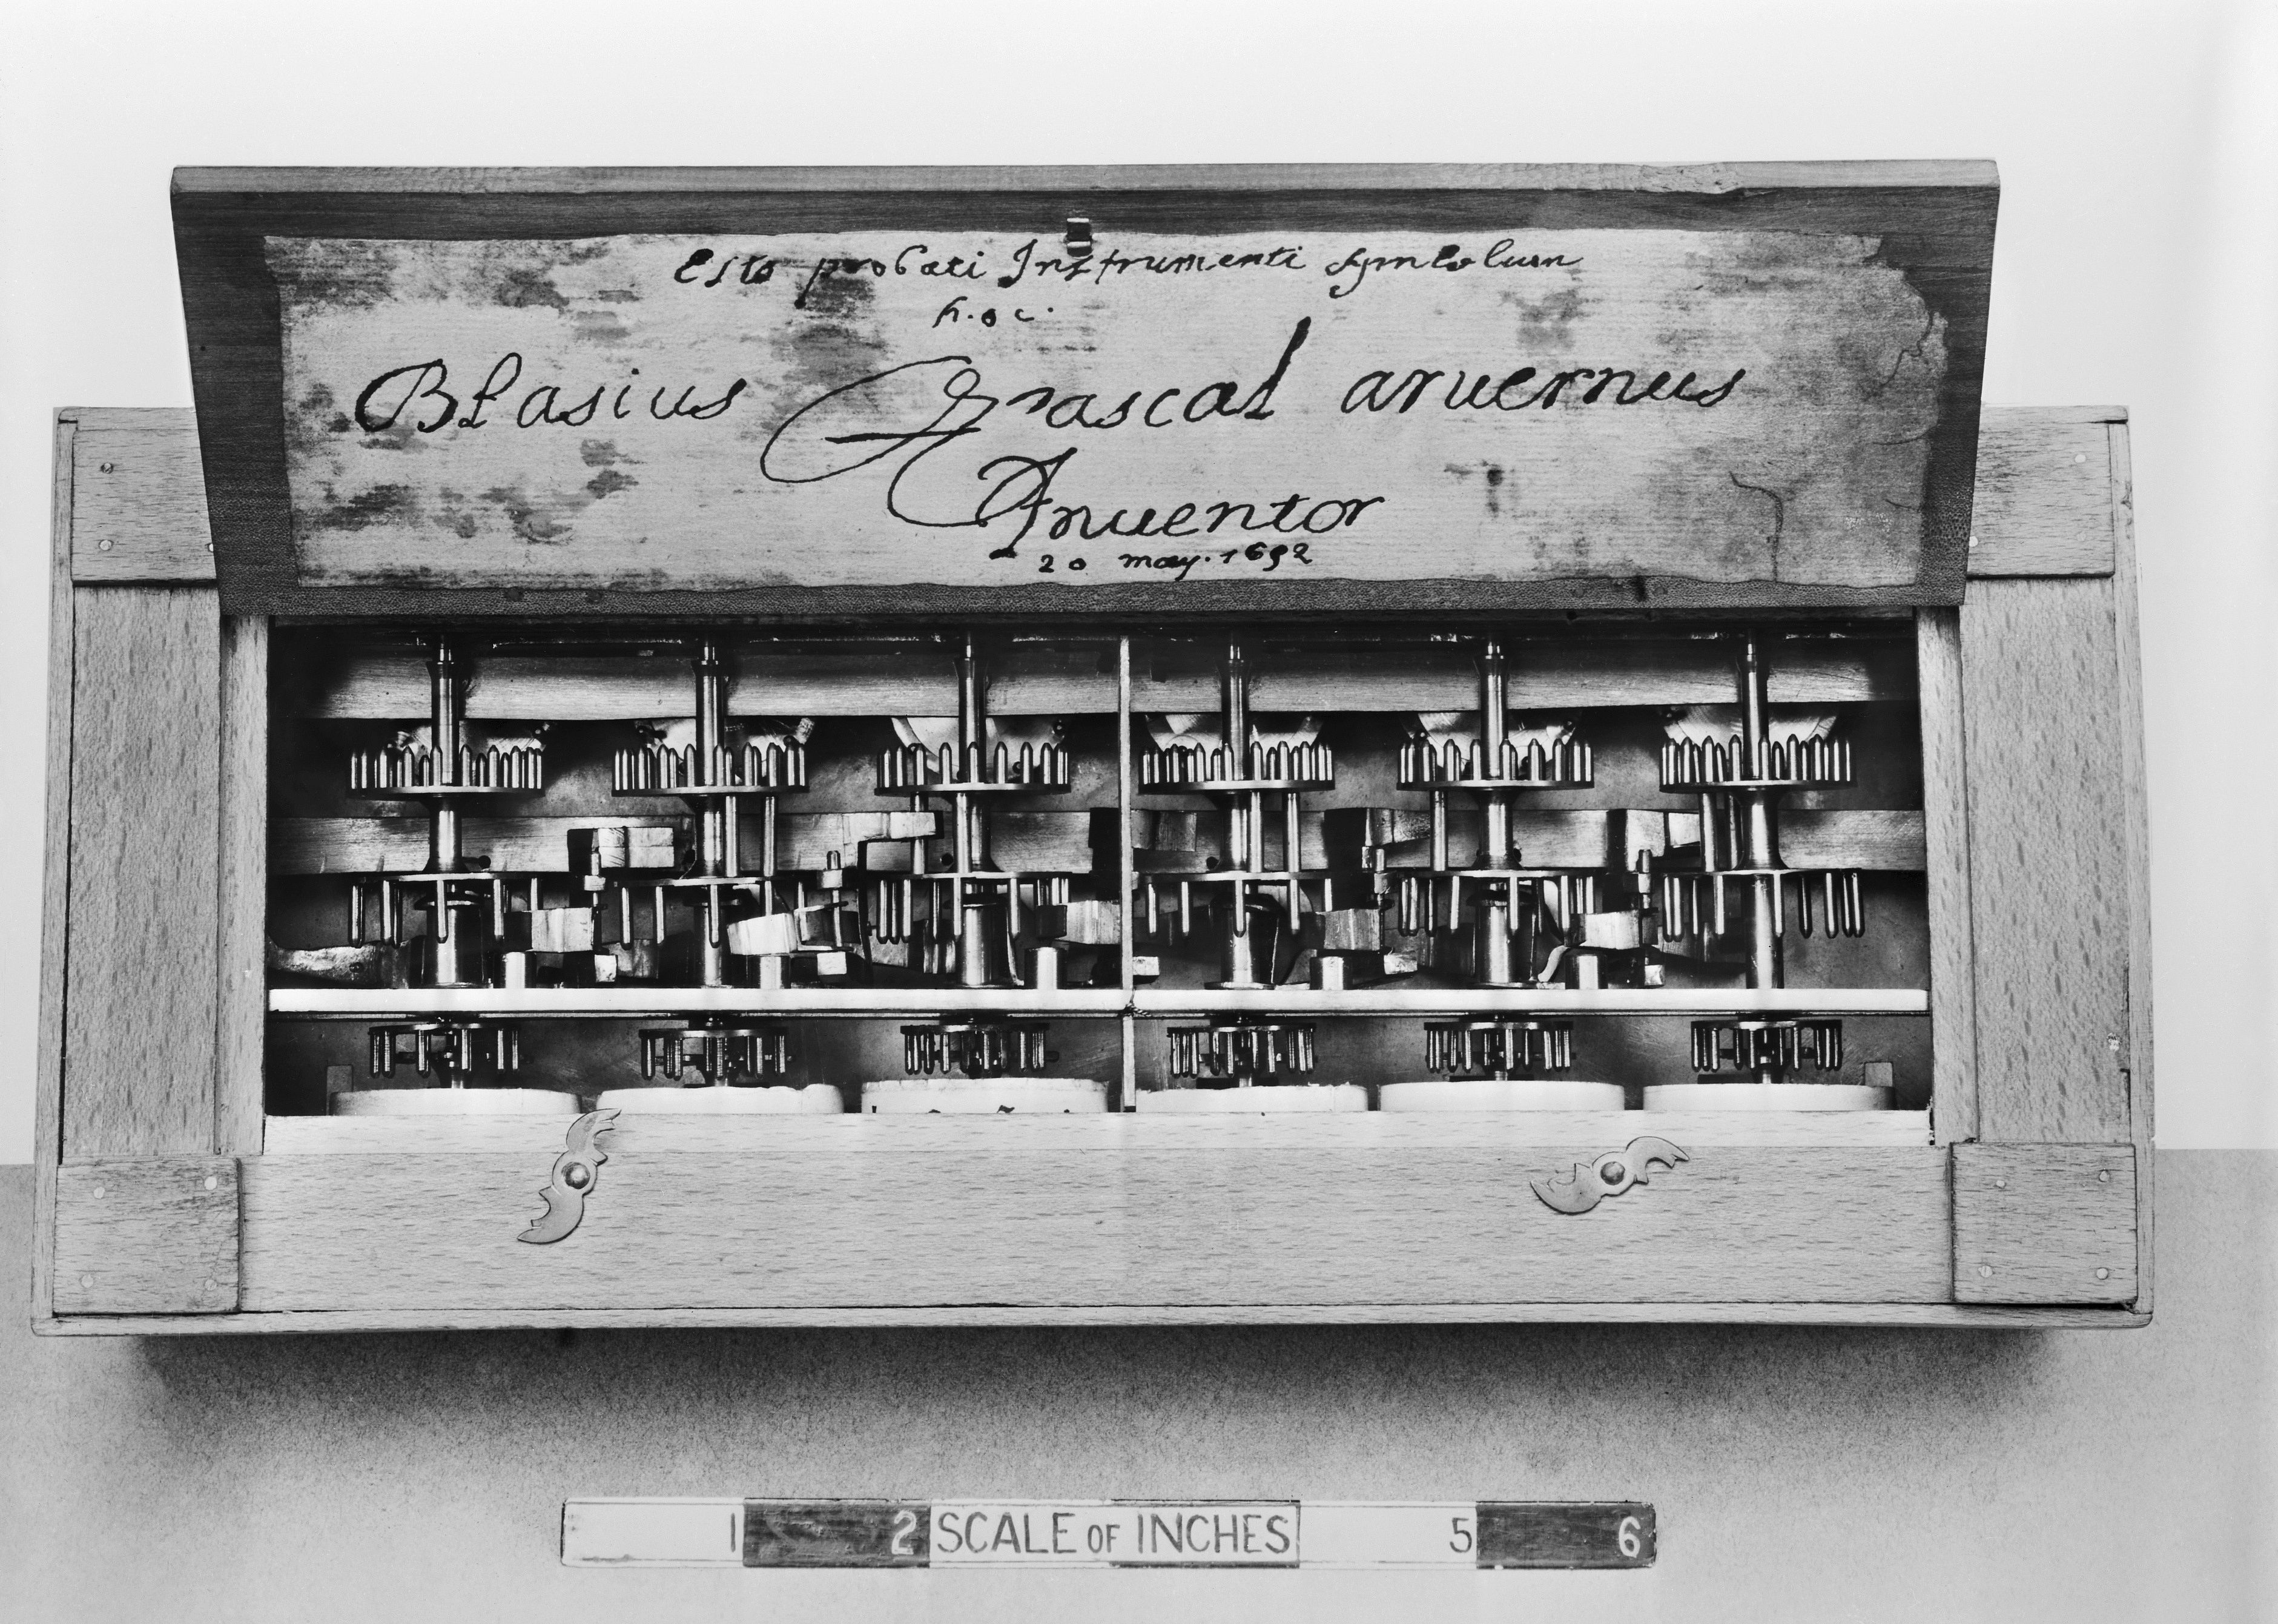 Esto probati Instrumenti symbolum
h.o c.
Blasius Pascal aruernus
Inuentor
20 may. 1692
1 2 SCALE OF INCHES 5 6